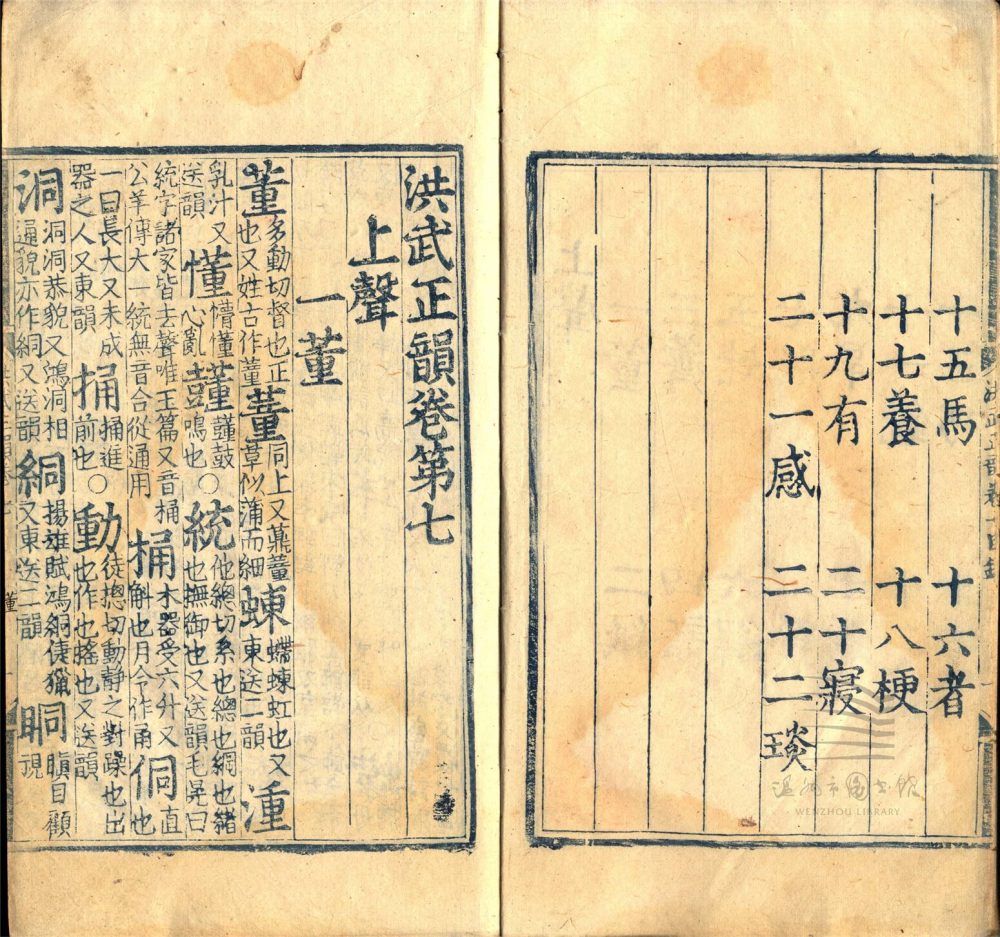 十五馬 十六者
十七養 十八梗
十九有 二十寢
二十一感 二十二琰
洪武正韻卷第七
上聲
一董
董多動切督也正也又姓古作董蕫同上又薡蕫草似蒲而細蝀螮蝀虹也又東送二韻湩
乳汁又送韻懂懵懂心亂鼓鳴也○統他總切系也總也綱也緒也撫御也又送韻毛晃曰
統字諸家皆去聲唯玉篇又音桶公羊傳大一統無音合從通用桶木器受六升又斛也月令作甬侗直也
一曰長大又未成器之人又東韻捅捅進前也○動徒摠切動靜之對躁也出也作也搖也又送韻
洞洞洞恭貌又鴻洞相通貌亦作絧又送韻絧揚雄賦鴻絧倢獵又東送二韻眮瞋目顧視
温州市图书馆
WENZHOU LIBRARY